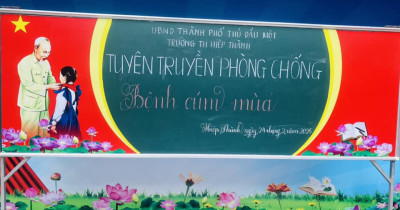 UBND THÀNH PHỐ THỦ DẦU MỘT
TRƯỜNG TH HIỆP THÀNH
TUYÊN TRUYỀN PHÒNG CHỐNG
Bệnh cúm mùa
Hiệp Thành, ngày 24 tháng 2 năm 2025